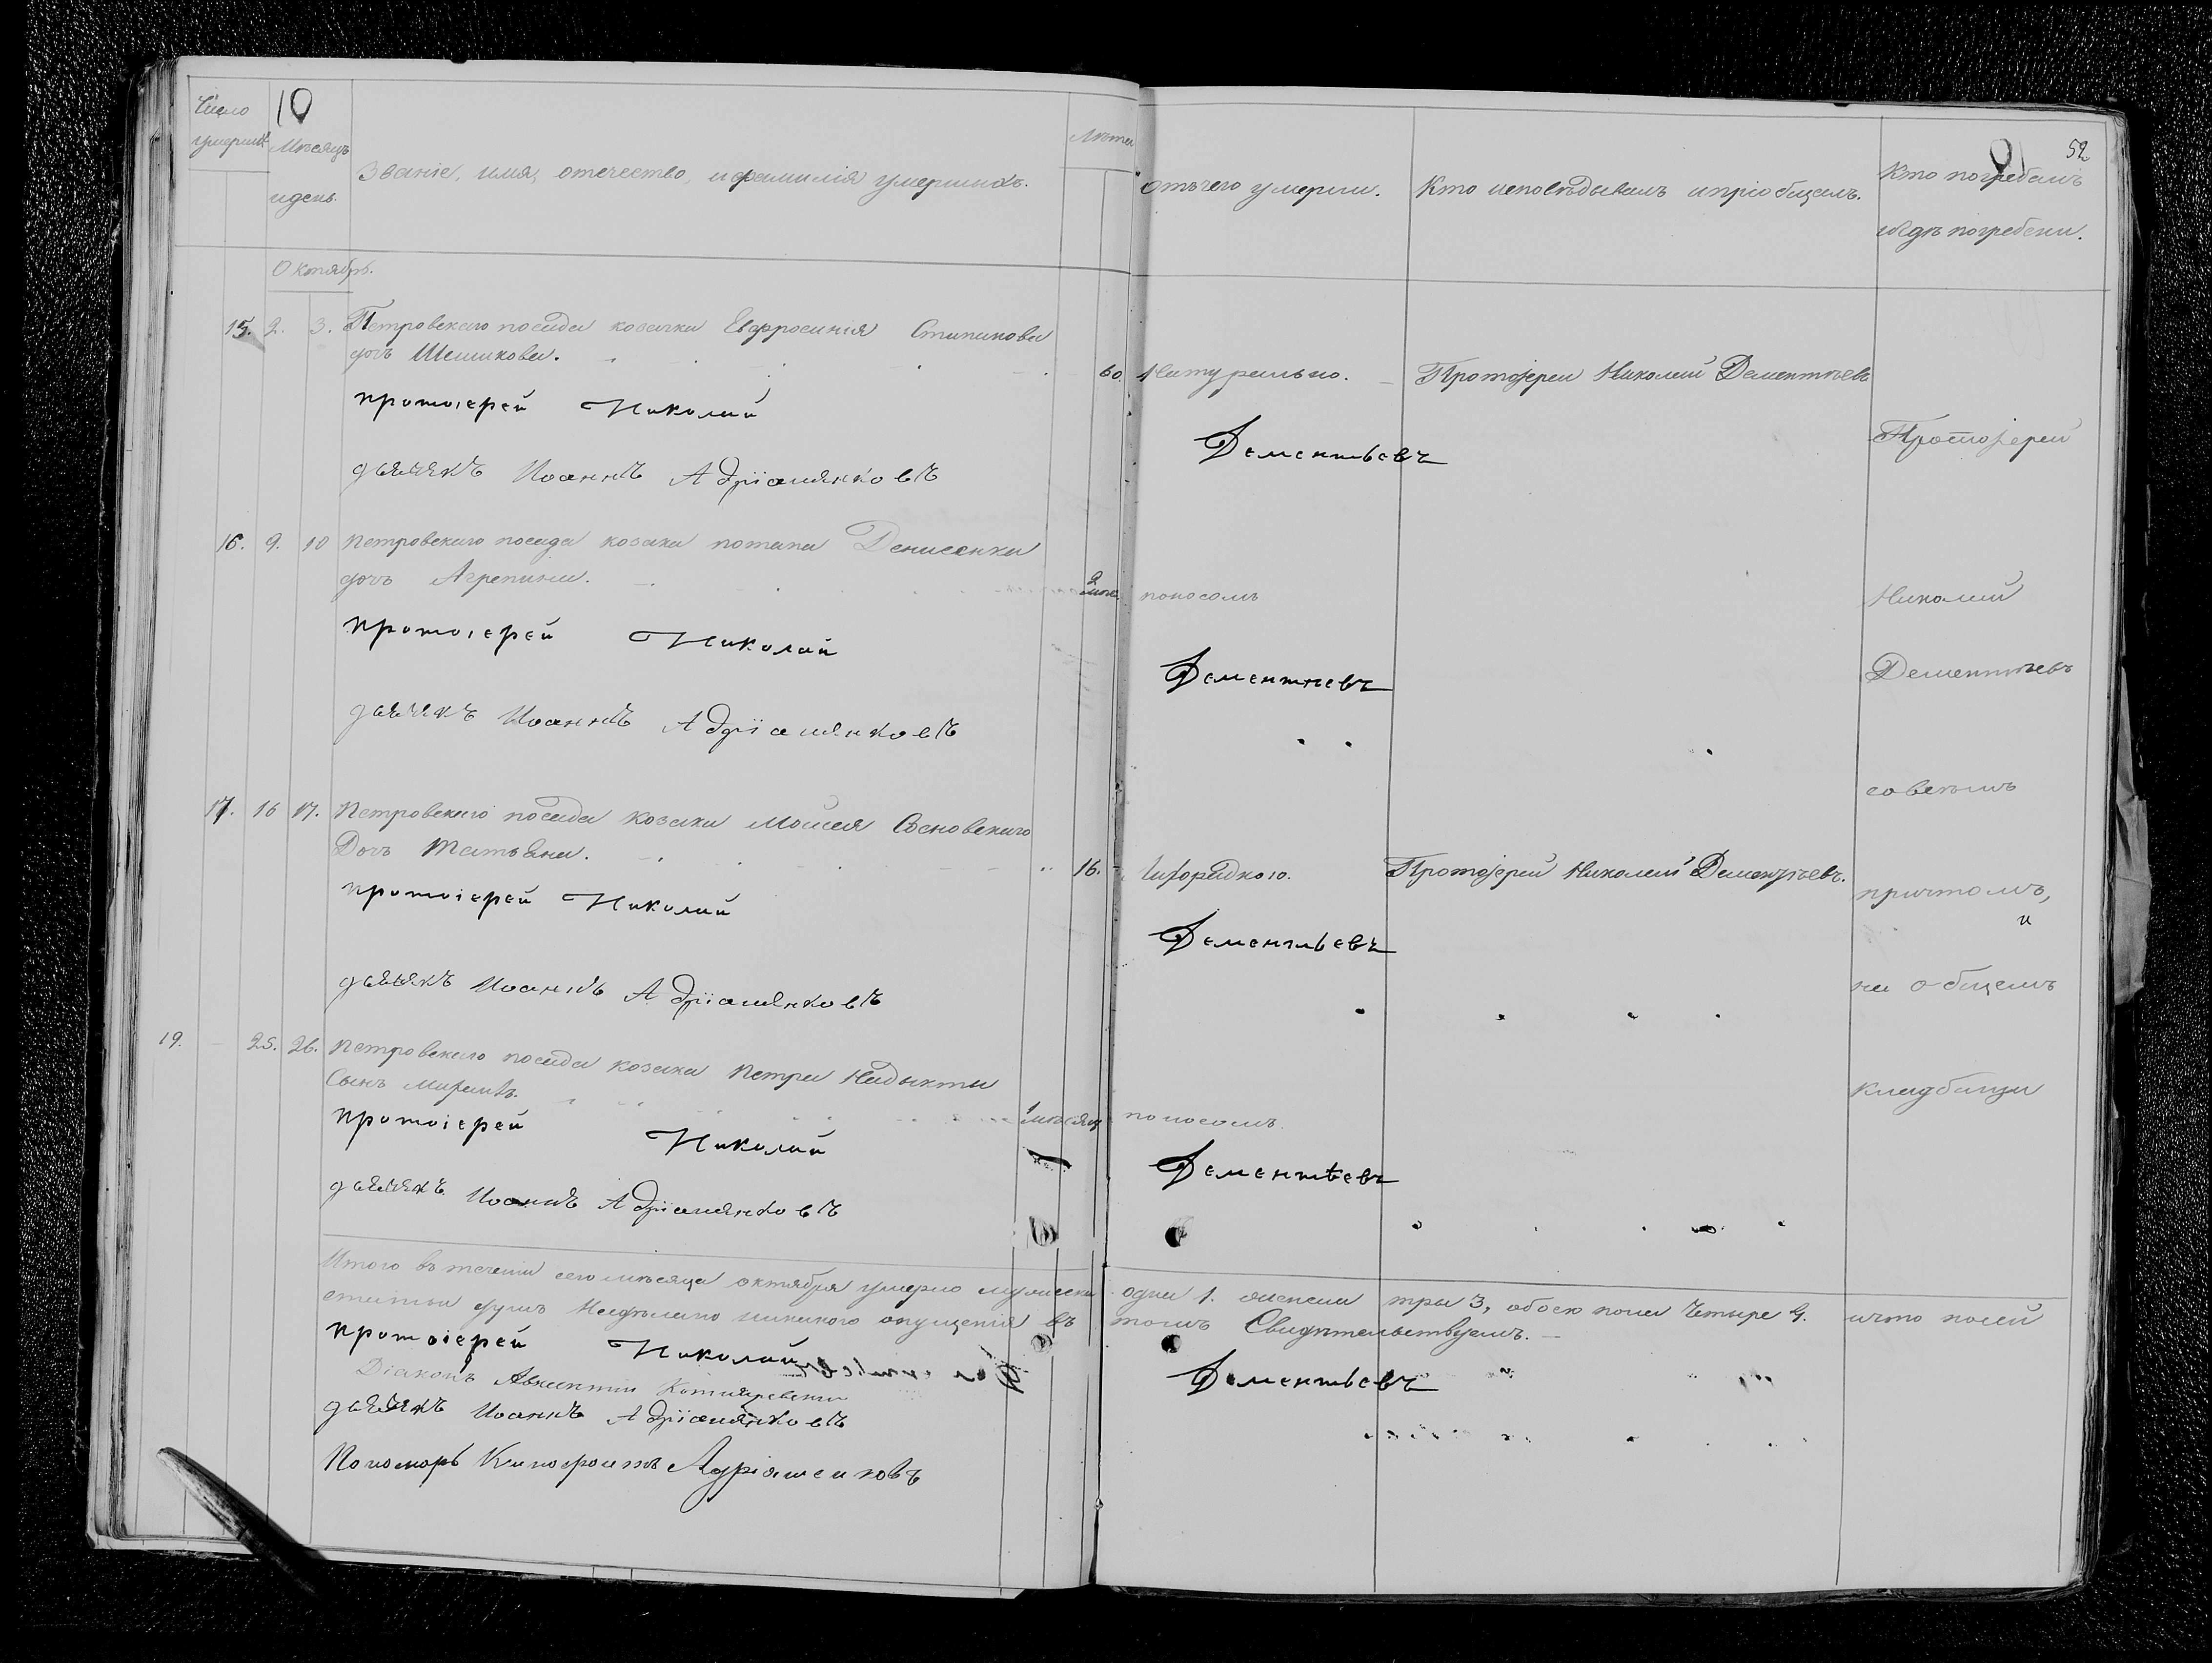 Число
умершихъ
10
Мѣсяцъ
идень.
Званіе, имя, отечество, ифамилія умершихъ.
Лѣта
отъчего умерли.
Кто исповѣдывалъ ипріобщалъ.
52
Кто погребалъ
игдѣ погребени.
Октябрь.
15. 2. 3. Петровскаго посада козачка Евфросинія Стипанова
дочь Шешкова. 60. Натурально. Протоіерей Николай Дементьевъ
протоіерей Николай Дементьевъ
дьячекъ Иоаннъ Адріашенковъ
16. 9. 10 Петровскаго посада козака потапа Денисенка
дочь Агрепина. 2 поносомъ
протоіерей Николай Дементьевъ
дьячекъ Иоаннъ Адріашенковъ
17. 16 17. Петровскаго посада козака Моисея Сосновскаго
Дочь Татьяна. 16. Лихорадкою. Протоіерей Николай Дементьевъ.
протоіерей Николай Дементьевъ
дьячекъ Иоаннъ Адріашенковъ
19. 25. 26. Петровскаго посада козака Петра
Сынъ 1 мѣсяц поносомъ.
протоіерей Николай Дементьевъ
дьячекъ Иоаннъ Адріашенковъ
Протоіерей
Николай
Дементьевъ
совсѣмъ
причтомъ,
и
на общемъ
кладбищи
Итого въ течении сего мѣсяца октября умерло мужеска одна 1. женска три 3, обоего пола Четыре 4. ичто полей
душъ никакого опущенія въ томъ Свидѣтельствуемъ.
протоіерей Николай Дементьевъ
Діаконъ Авксентий Котляревский
дьячекъ Иоаннъ Адріашенковъ
Пономарь Адріашенковъ